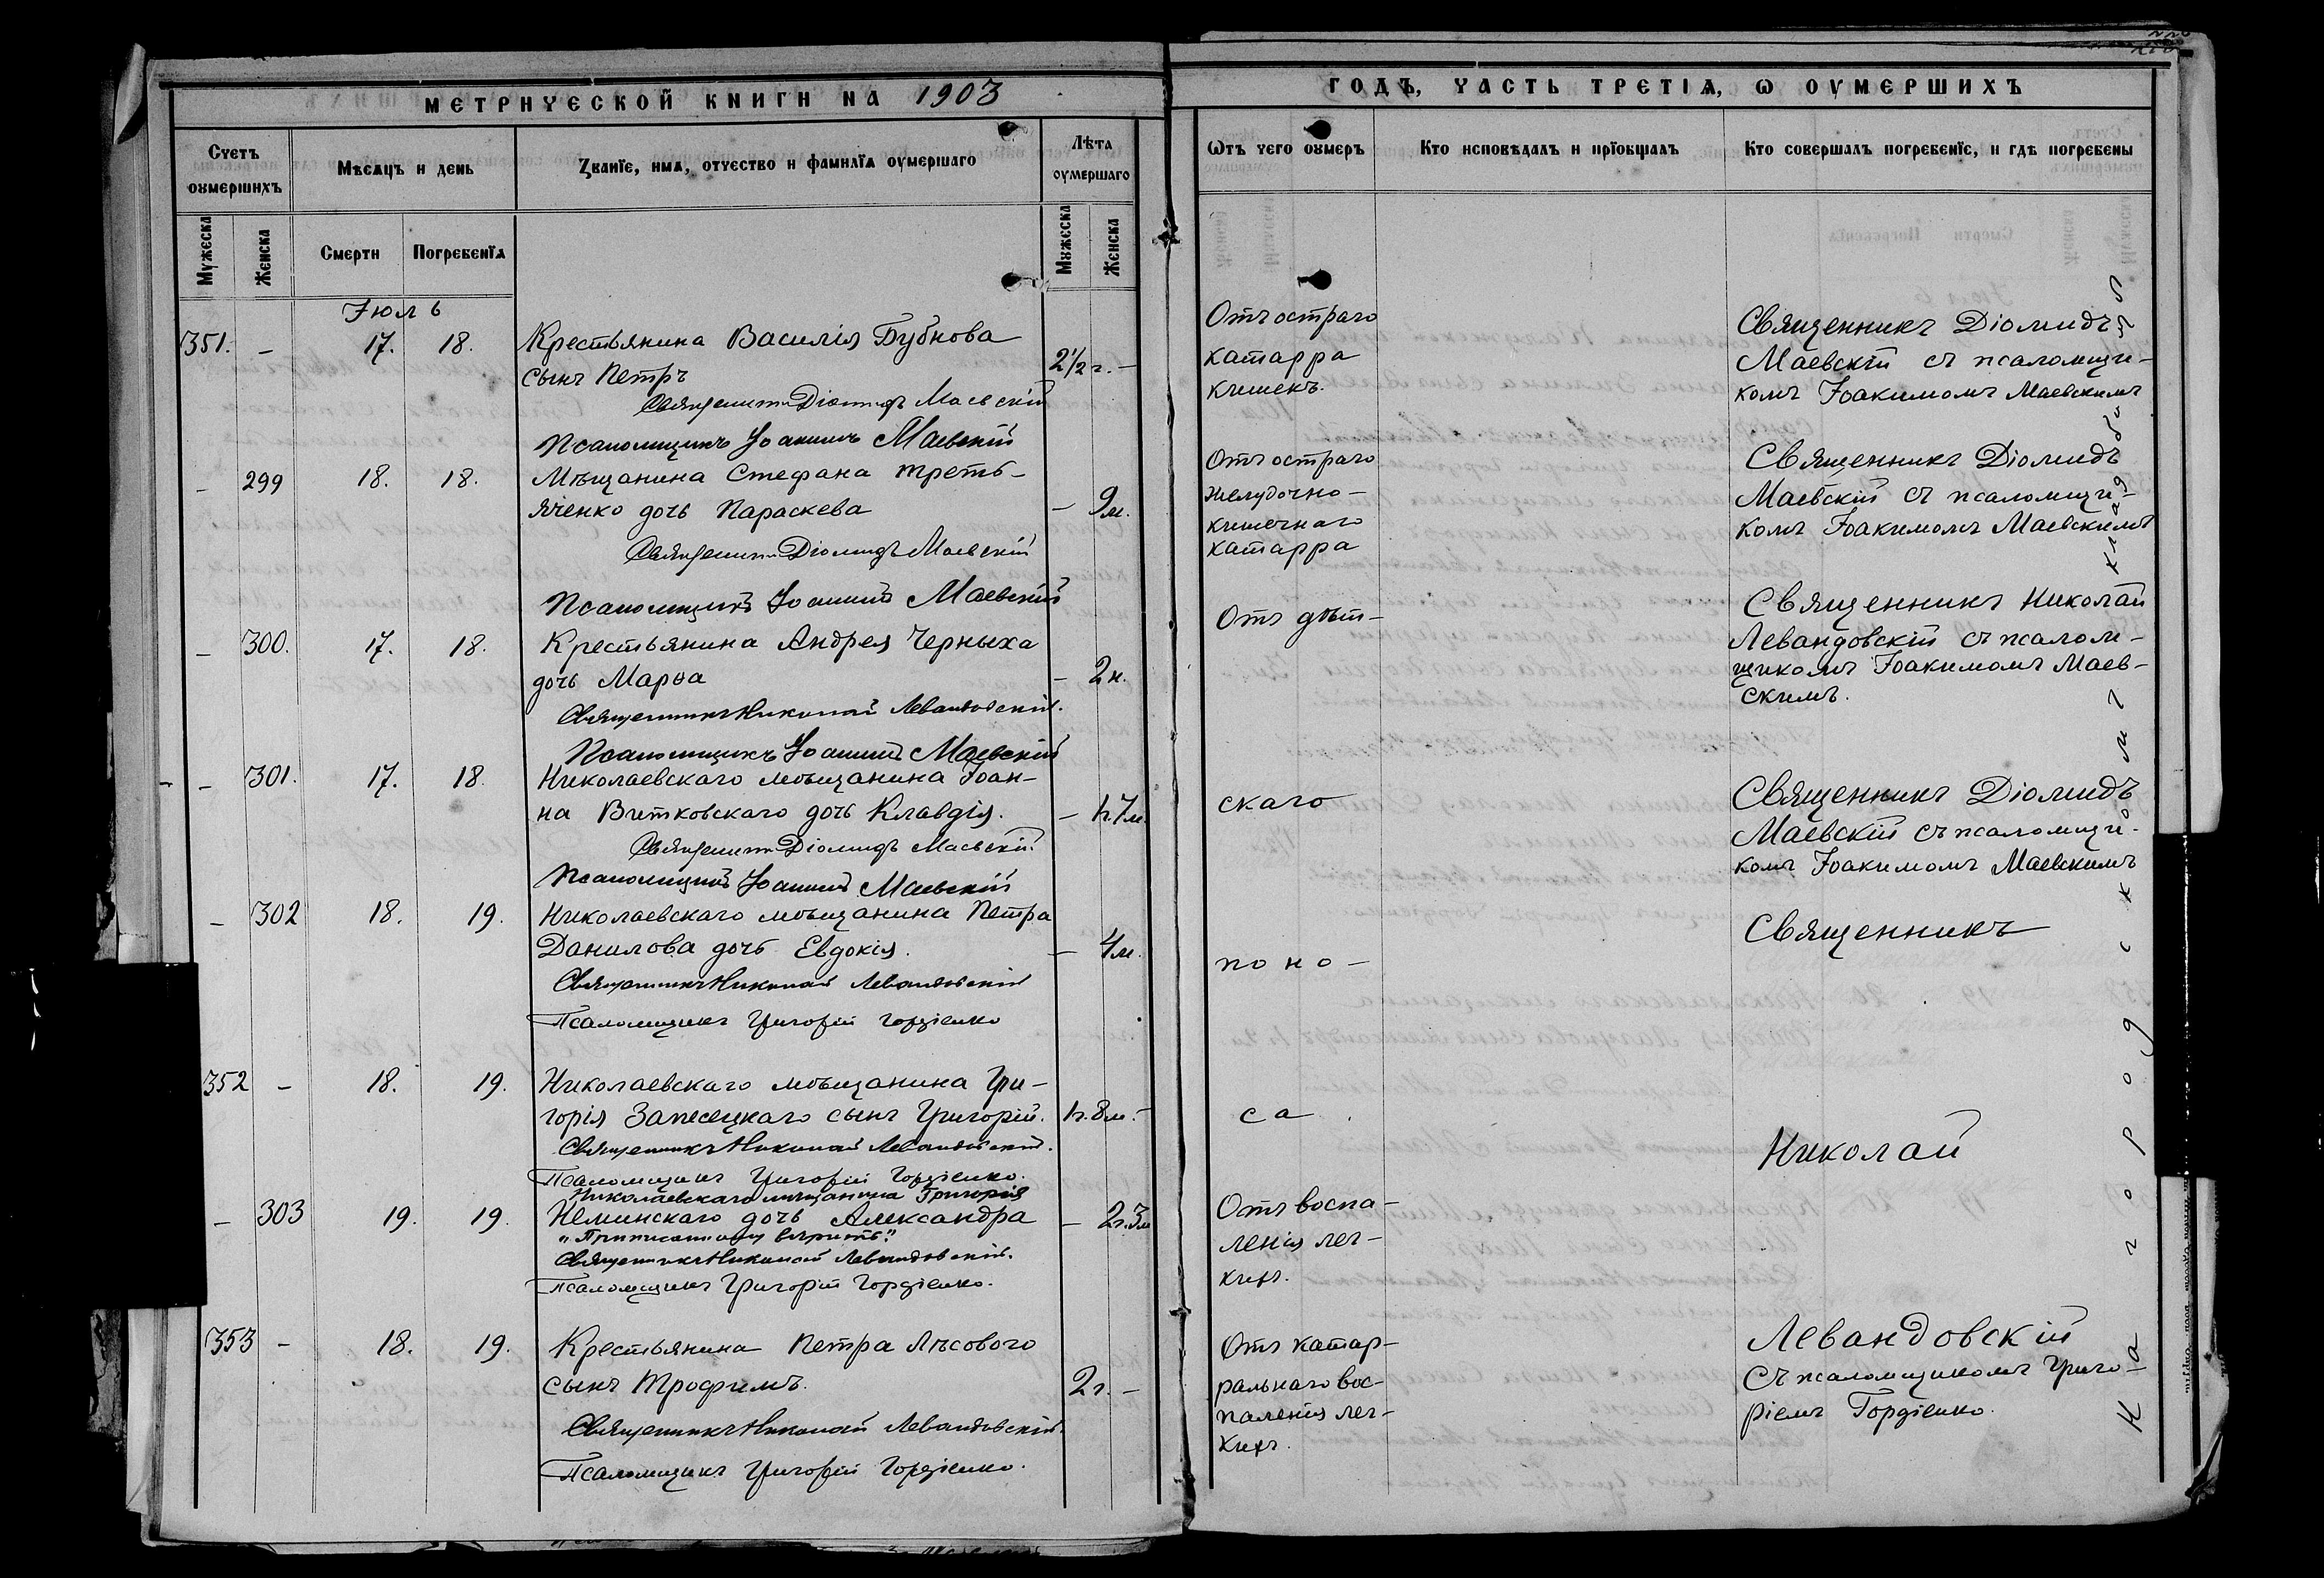 МЕТРИЧЕСКОЙ КНИГИ НА 1903
ГОДЪ, ЧАСТЬ ТРЕТІЯ, Ѡ ОУМЕРШИХЪ
Счетъ оумершихъ
Мѣсяцъ и день
Званіе, имя, отчество и фамилія оумершаго
Лѣта оумершаго
Ѿтъ чего оумеръ
Кто исповѣдалъ и пріобщалъ
Кто совершалъ погребеніе, и гдѣ погребены
Мужеска
Женска
Смерти
Погребенія
Мужеска
Женска
Іюль
351. – 17. 18. Крестьянина Василія Бубнова
сынъ Петръ 2½ г. –
Священникъ Діомидъ Маевскій
Псаломщикъ Іоакимъ Маевскій
Отъ остраго
катарра
кишекъ.
Священникъ Діомидъ
Маевскій съ псаломщи-
комъ Іоакимомъ Маевскимъ
– 299 18. 18. Мѣщанина Стефана Треть-
яченко дочь Параскева – 9 м.
Священникъ Діомидъ Маевскій
Псаломщикъ Іоакимъ Маевскій
Отъ остраго
желудочно-
кишечнаго
катарра
Священникъ Діомидъ
Маевскій съ псаломщи-
комъ Іоакимомъ Маевскимъ
– 300. 17. 18. Крестьянина Андрея Черныха
дочь Марѳа – 2 н.
Священникъ Николай Левандовскій.
Псаломщикъ Іоакимъ Маевскій
Отъ дѣт-
Священникъ Николай
Левандовскій съ псалом-
щикомъ Іоакимомъ Маев-
скимъ.
– 301. 17. 18. Николаевскаго мѣщанина Іоан-
на Витковскаго дочь Клавдія. – 1 г. 7 м.
Священникъ Діомидъ Маевскій.
Псаломщикъ Іоакимъ Маевскій
скаго
Священникъ Діомидъ
Маевскій съ псаломщи-
комъ Іоакимомъ Маевскимъ
– 302 18. 19. Николаевскаго мѣщанина Петра
Данилова дочь Евдокія. – 4 м.
Священникъ Николай Левандовскій
Псаломщикъ Григорій Гордіенко
поно-
Священникъ
352 – 18. 19. Николаевскаго мѣщанина Гри-
горія Запесецкаго сынъ Григорій. 1 г. 8 м. –
Священникъ Николай Левандовскій.
Псаломщикъ Григорій Гордіенко.
са
Николай
Николаевскаго мѣщанина Григорія
– 303 19. 19. Неминскаго дочь Александра – 2 г. 3 м
„Приписанному вѣрить."
Священникъ Николай Левандовскій.
Псаломщикъ Григорій Гордіенко.
Отъ воспа-
ленія лег-
кихъ.
353 – 18. 19. Крестьянина Петра Лѣсового
сынъ Трофимъ. 2 г. –
Священникъ Николай Левандовскій.
Псаломщикъ Григорій Гордіенко.
Отъ катар-
ральнаго вос-
паленія лег-
кихъ.
Левандовскій
съ псаломщикомъ Григо-
ріемъ Гордіенко.
На городскомъ кладбищѣ